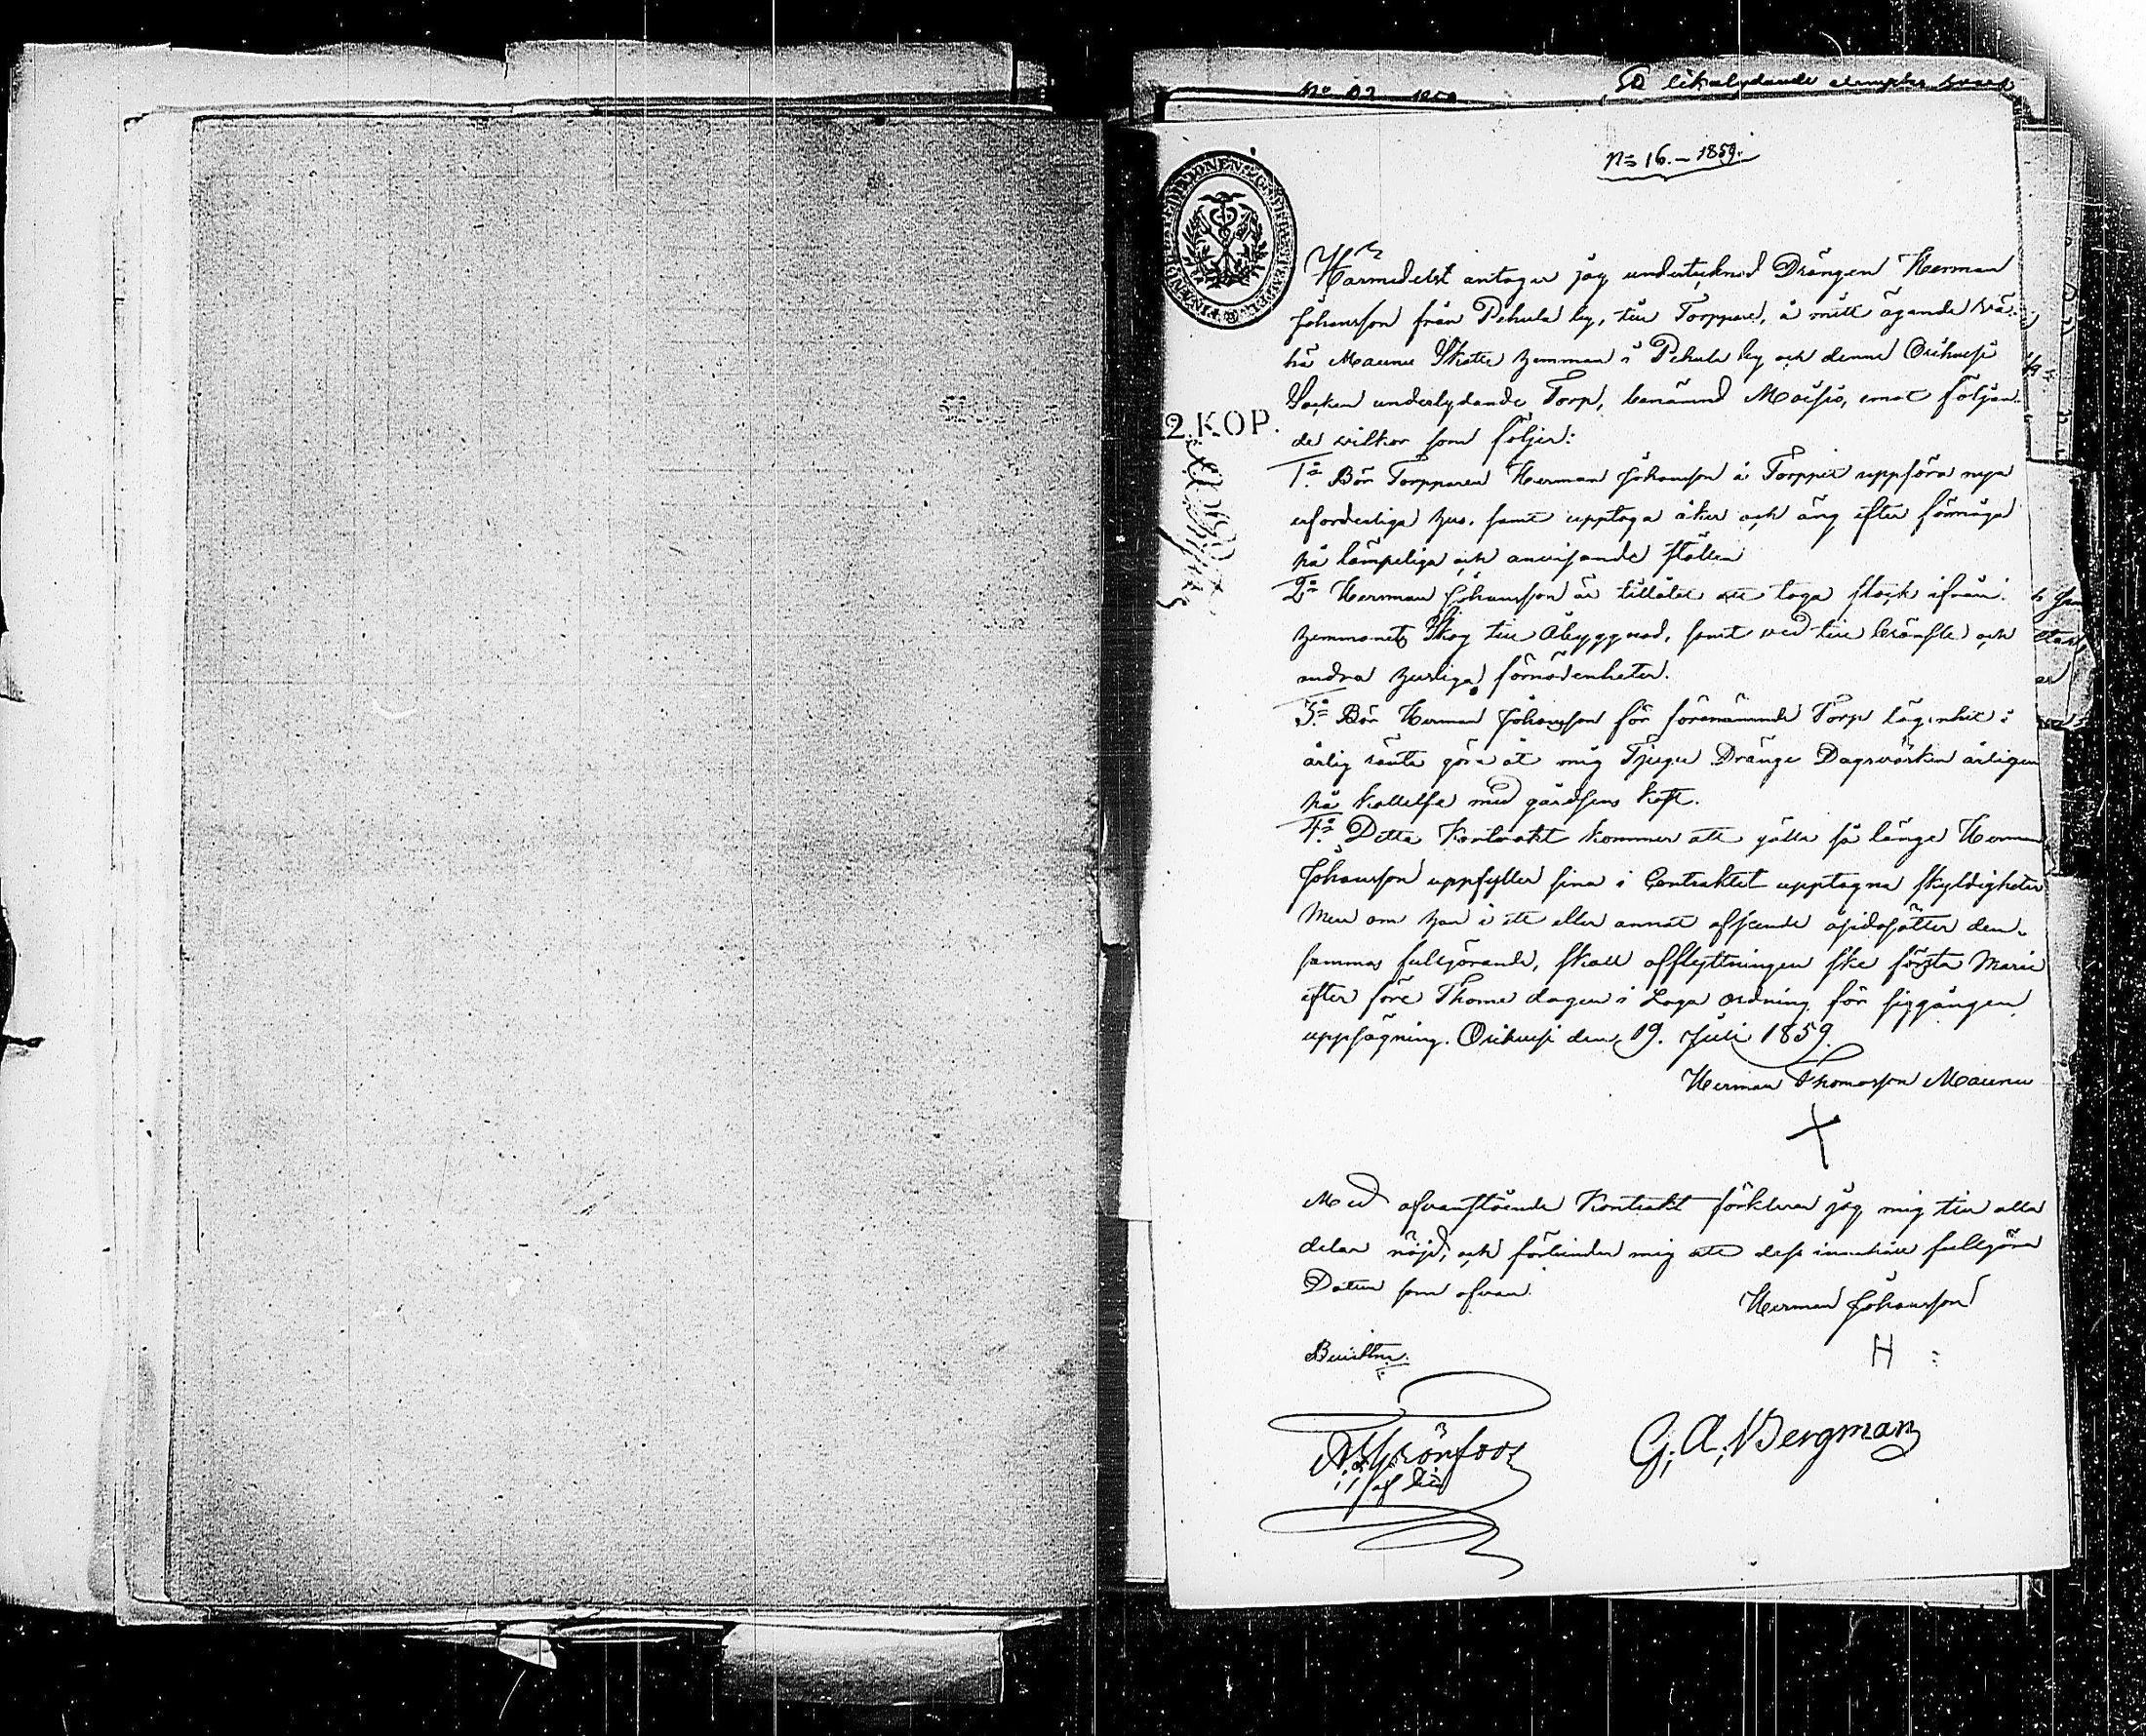 Ett likalydande exemplar
N:o 16. – 1859.
2 KOP.
Härmedelst antager jag undertecknad Drängen Herman
Johansson från Pekula by, till Torppare, å mitt ägande
Maunu Skatte hemman i Pekula by och denne Orihvesi
Socken underlydande Torp, benämnd Moisio, emot följan-
de vilkor som följer:
1:o Bör Torpparen Herman Johansson å Torppet uppföra nya
erforderliga hus, samt upptaga åker och äng efter förmåga
på lämpeliga och anvisande ställen
2:o Herman Johansson är tillåtet att taga stock ifrån
hemmanets Skog till Åbyggnad, samt ved till bränsle och
andra husliga förnödenheter.
3:o Bör Herman Johansson för förenämnde Torp lägenhet i
årlig ränta göra åt mig Tjugu Dränge Dagsvärken årligen
på kallelse med gårdsens kost.
4:o Detta Kontrakt kommer att gälla så länge Herman
Johansson uppfyller sina i Contraktet upptagna skyldigheter
Men om han i ett eller annat afseende åsidosätter den-
sammas fullgörande, skall afflyttningen ske första Marie
efter före Thome dagen i Laga ordning för siggången
uppsägning. Orihvesi den 19. Juli 1859.
Herman Thomasson Maunu
X
Med ofvanstående Kontrakt förklarar jag mig till alla
delar nöjd, och förbinder mig att dess innehåll fullgöra
Datum som ofvan.
Herman Johansson
H
Bevittna:
Grönfors
G. A. Bergman